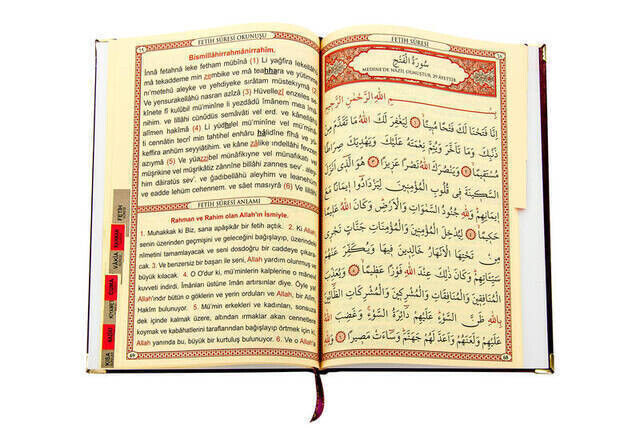 FETİH SÛRESİ OKUNUŞU
Bismillâhirrahmânirrahîm.
İnnâ fetahnâ leke fetham mübînâ (1) Li yağfira lekellâhu
mâ tekaddeme min zembike ve mâ teahhara ve yütimme
ni'metehû aleyke ve yehdiyeke sırâtam müstekîmâ (2)
Ve yensurakellâhü nasran azîzâ (3) Hüvellezî enzeles se
kînete fî kulûbil mü'minîne li yezdâdû îmânem mea îmâ
nihim. ve lillâhi cünûdüs semâvâti vel erd. ve kânellâhü
alîmen hakîmâ (4) Li yüdhilel mü'minîne vel mü'minâ
ti cennâtin tecrî min tahtihel enhâru hâlidîne fîhâ ve yü
keffira anhüm seyyiâtihim. ve kâne zâlike ındellâhi fevzen
azıymâ (5) Ve yüazzibel münâfikîne vel münâfikati vel
müşrikîne vel müşrikâtiz zânnîne billâhi zannes sev'. aley
him dâiratüs sev'. ve ğadıbellâhü aleyhim ve leanehüm
ve eadde lehüm cehennem. ve sâet masıyrâ (6) Ve lillâhi
FETİH SÛRESİ ANLAMI
Rahman ve Rahim olan Allah'ın İsmiyle.
1. Muhakkak ki Biz, sana apaşikâr bir fetih açtık. 2. Ki Allah
senin üzerinden geçmişini ve geleceğini bağışlayıp, üzerindeki
nîmetini tamamlayacak ve seni dosdoğru bir caddeye çıkara
cak. 3. Ve benzersiz bir başarı ile seni, Allah yardım olunmuş ve
büyük kılacak. 4. O O'dur ki, mü'minlerin kalplerine o mânevi
kuvveti indirdi. İmânları üstüne îmân artırsınlar diye. Öyle ya
Allah'ındır bütün o göklerin ve yerin orduları ve Allah, bir Alîm
Hakîm bulunuyor. 5. Mü'min erkekleri ve kadınları, sonsuza
dek içinde kalmak üzere, altından ırmaklar akan cennetlere
koymak ve kabahatlerini taraflarından bağışlayıp örtmek için ki,
Allah yanında bu, büyük bir kurtuluş bulunuyor. 6. Ve o Allah'a
69
FETİH
VAKIA
CUMA
FETİH SÛRESİ
سُورَةُ الْفَتْحِ
MEDİNE'DE NAZİL OLMUŞTUR. 29 ÂYETTİR
بِسْمِ اللهِ الرَّحْمٰنِ الرَّحِيمِ
إِنَّا فَتَحْنَا لَكَ فَتْحًا مُبِينًا ﴿١﴾ لِيَغْفِرَ لَكَ اللهُ مَا تَقَدَّمَ مِنْ
ذَنْبِكَ وَمَا تَأَخَّرَ وَيُتِمَّ نِعْمَتَهُ عَلَيْكَ وَيَهْدِيَكَ صِرَاطًا
مُسْتَقِيمًا ﴿٢﴾ وَيَنْصُرَكَ اللهُ نَصْرًا عَزِيزًا ﴿٣﴾ هُوَ الَّذِي أَنْزَلَ
السَّكِينَةَ فِي قُلُوبِ الْمُؤْمِنِينَ لِيَزْدَادُوا إِيمَانًا مَعَ
إِيمَانِهِمْ وَلِلهِ جُنُودُ السَّمٰوَاتِ وَالْأَرْضِ وَكَانَ اللهُ عَلِيمًا
حَكِيمًا ﴿٤﴾ لِيُدْخِلَ الْمُؤْمِنِينَ وَالْمُؤْمِنَاتِ جَنَّاتٍ تَجْرِي
مِنْ تَحْتِهَا الْأَنْهَارُ خَالِدِينَ فِيهَا وَيُكَفِّرَ عَنْهُمْ
سَيِّئَاتِهِمْ وَكَانَ ذٰلِكَ عِنْدَ اللهِ فَوْزًا عَظِيمًا ﴿٥﴾ وَيُعَذِّبَ
الْمُنَافِقِينَ وَالْمُنَافِقَاتِ وَالْمُشْرِكِينَ وَالْمُشْرِكَاتِ الظَّانِّينَ
بِاللهِ ظَنَّ السَّوْءِ عَلَيْهِمْ دَائِرَةُ السَّوْءِ وَغَضِبَ اللهُ
عَلَيْهِمْ وَلَعَنَهُمْ وَأَعَدَّ لَهُمْ جَهَنَّمَ وَسَاءَتْ مَصِيرًا ﴿٦﴾ وَلِلهِ
68